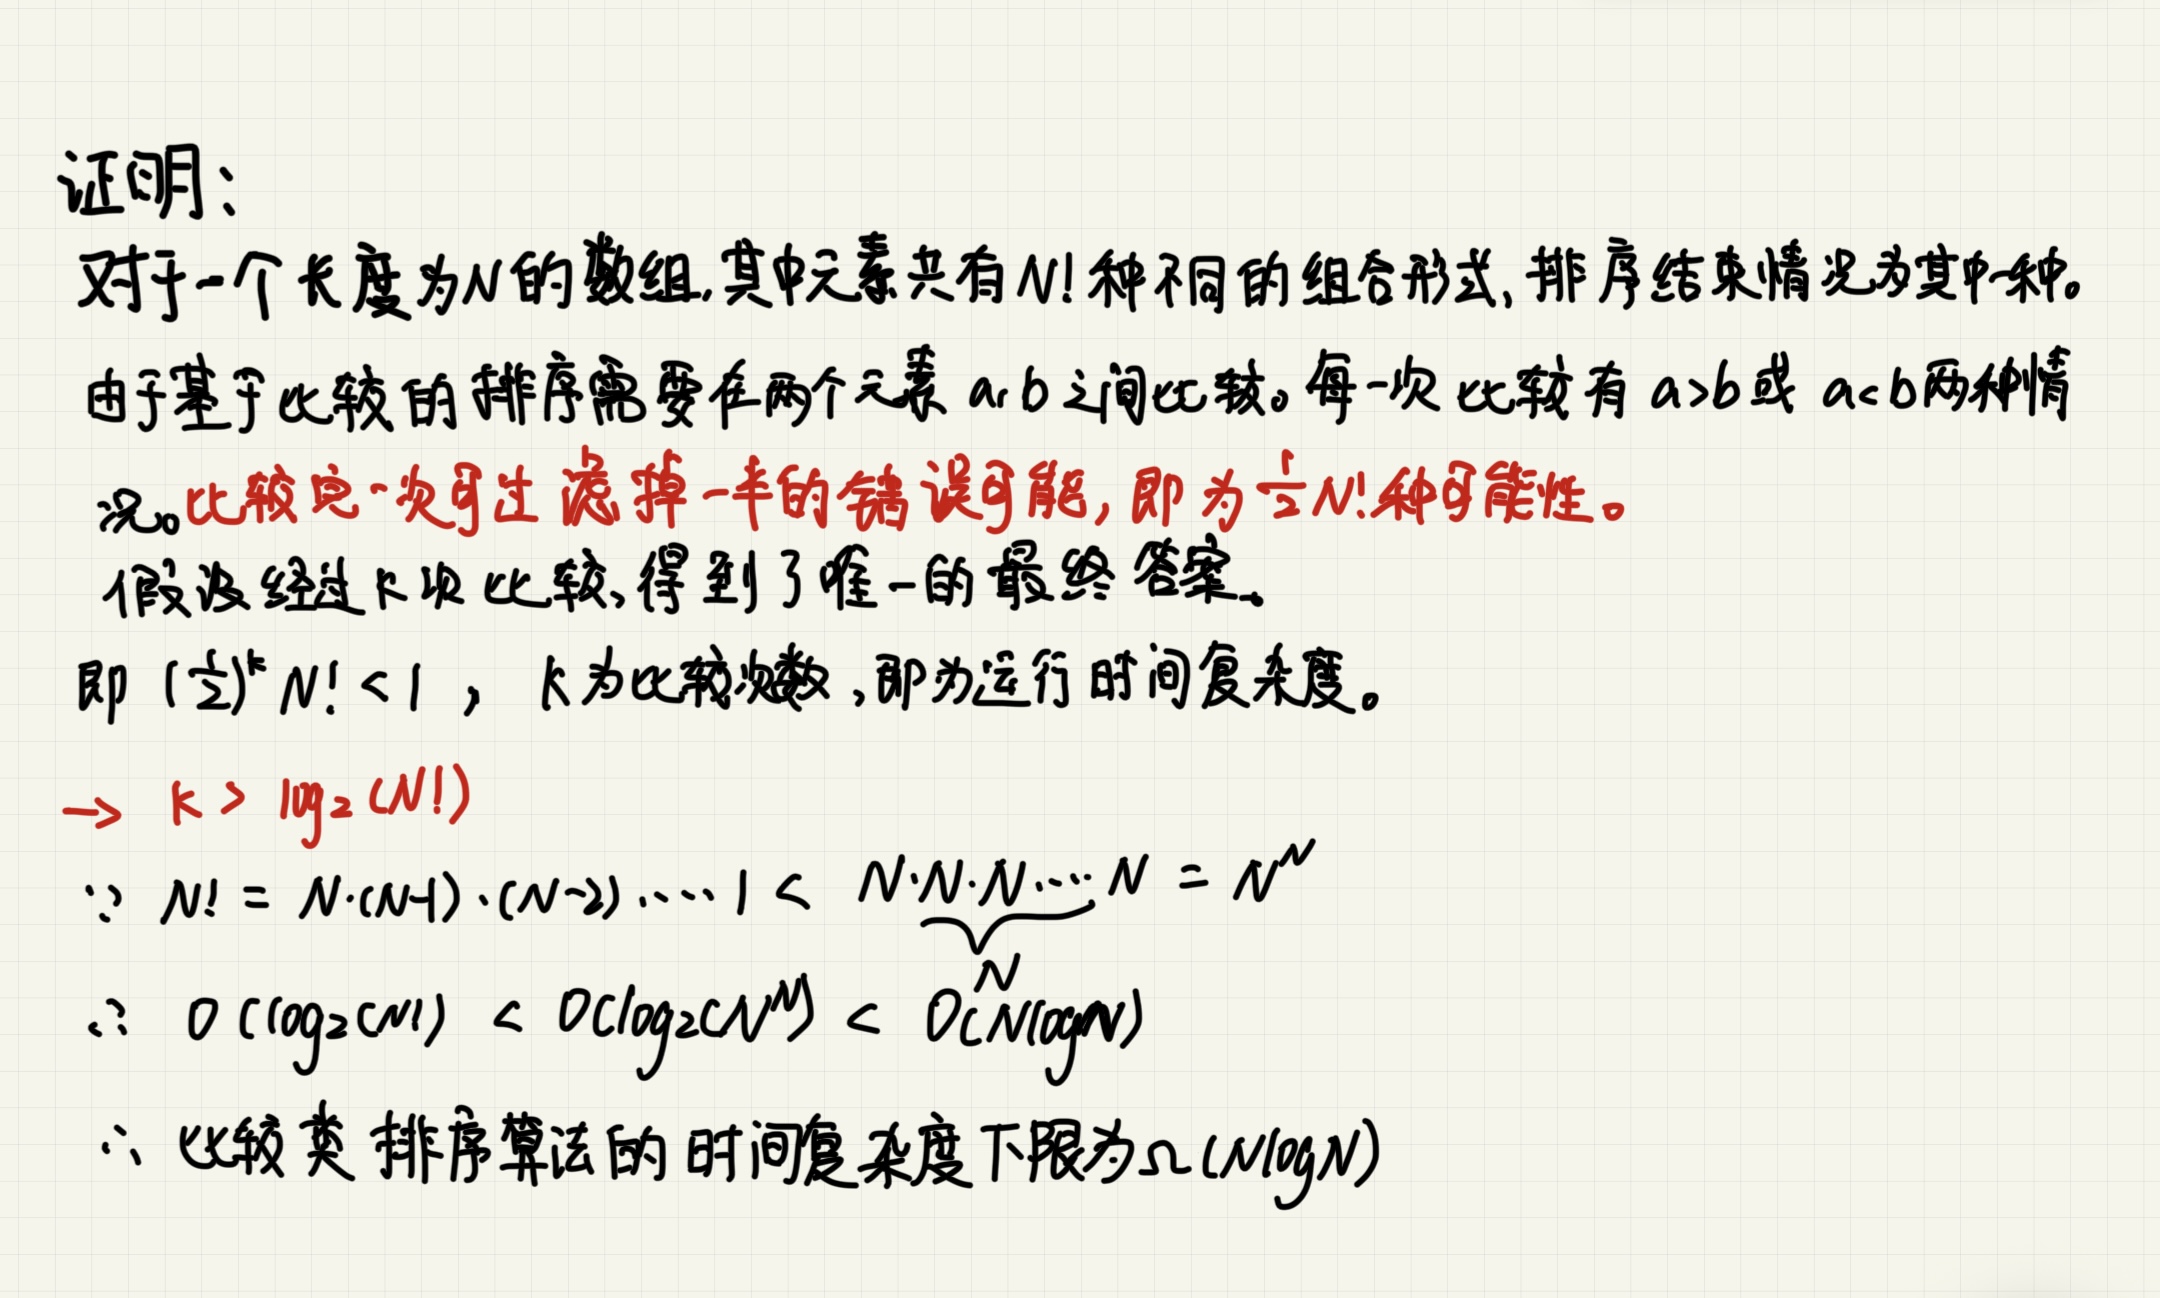 证明：
对于一个长度为N的数组，其中元素共有N!种不同的组合形式，排序结束情况为其中一种。
由于基于比较的排序需要在两个元素a,b之间比较。每一次比较有a>b或a<b两种情
况。比较完一次可过滤掉一半的错误可能，即为½N!种可能性。
假设经过k次比较，得到了唯一的最终答案。
即 (½)^k N! < 1 ， k为比较次数，即为运行时间复杂度。
→ k > log₂(N!)
∵ N! = N·(N-1)·(N-2)·…·1 < N·N·N·…·N = N^N
N
∴ O(log₂(N!) < O(log₂(N^N) < O(NlogN)
∴ 比较类排序算法的时间复杂度下限为Ω(NlogN)